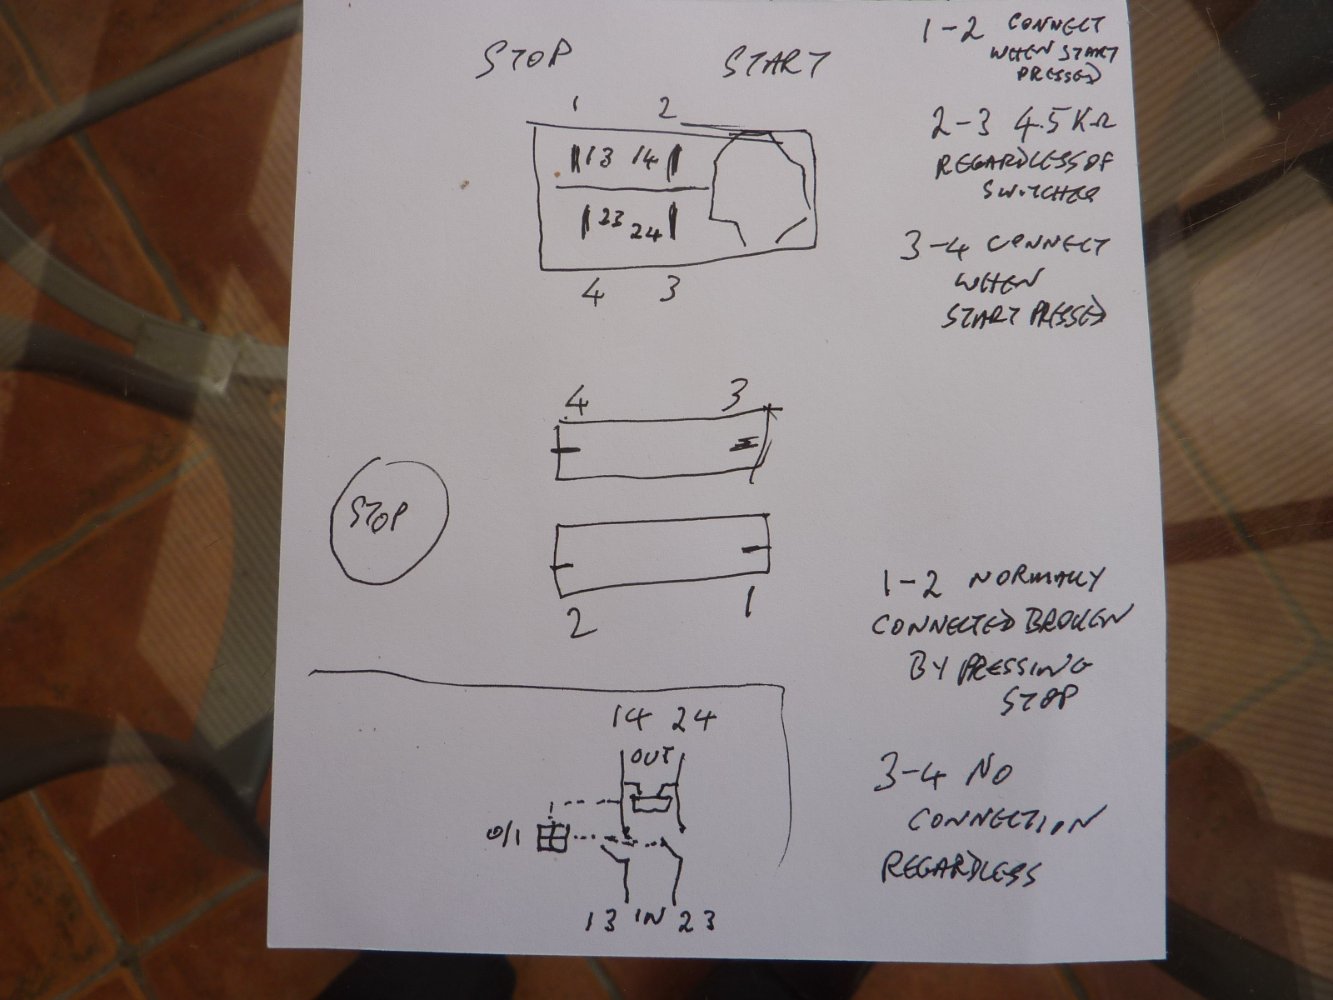 STOP START
1 2
13 14
23 24
4 3
1-2 CONNECT
WHEN START
PRESSED
2-3 4.5 KΩ
REGARDLESS OF
3-4 CONNECT
WHEN
START PRESSED
4 3
STOP
2 1
1-2 NORMALLY
CONNECTED BROKEN
BY PRESSING
STOP
3-4 NO
CONNECTION
REGARDLESS
14 24
OUT
0/1
13 IN 23